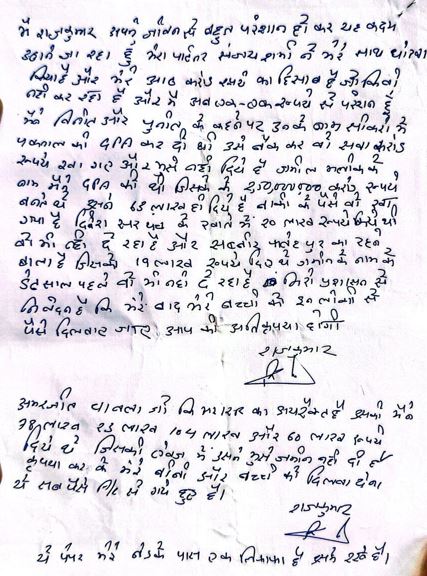 मैं राजकुमार अपने जीवन से बहुत परेशान हो कर यह कदम
उठाने जा रहा हूँ मेरा पार्टनर संजय शर्मा ने मेरे साथ धोखा
किया है और मेरे आठ करोड़ रुपये का हिसाब है जो कि वो
नहीं कर रहा है और मैं अब एक-एक रुपये से परेशान हूँ
मैंने विनीत और पुनीत के कहने पर उनके नाम सीकरी में
मकान की GPA कर दी थी उसे बेच कर वो सवा करोड़
रुपये खा गए और मुझे नहीं दिये है जमील मलीक के
नाम मैंने GPA की थी जिसके करोड़ रुपये
बनते थे उसने 63 लाख ही दिये है बाकी के पैसे वो खा
गया है दिनेश के खाते में 20 लाख रुपये दिये थे
वो भी नहीं दे रहा है और फतेह पुर का रहने
वाला है जिसको 19 लाख रुपये दिए थे जमीन के नाम के
डेढ साल पहले वो भी नहीं दे रहा है मेरी प्रशासन से
निवेदन है कि मेरे बाद मेरे बच्चों को इन लोगों से
पैसे दिलवाए जाए आप की अति कृपया होगी
राजकुमार
अमरजीत चावला जो कि का डायरेक्टर है उसको मैंने
23 लाख 104 लाख और 60 लाख रुपये
दिये थे जिसकी में उसने मुझे जमीन नहीं दी है
कृपया कर के मेरे बीवी और बच्चों को दिलवा देना
ये सब पैसे में गये हुए है।
राजकुमार
ये पेपर मेरे के पास एक लिफाफा है उसमें रखे है।